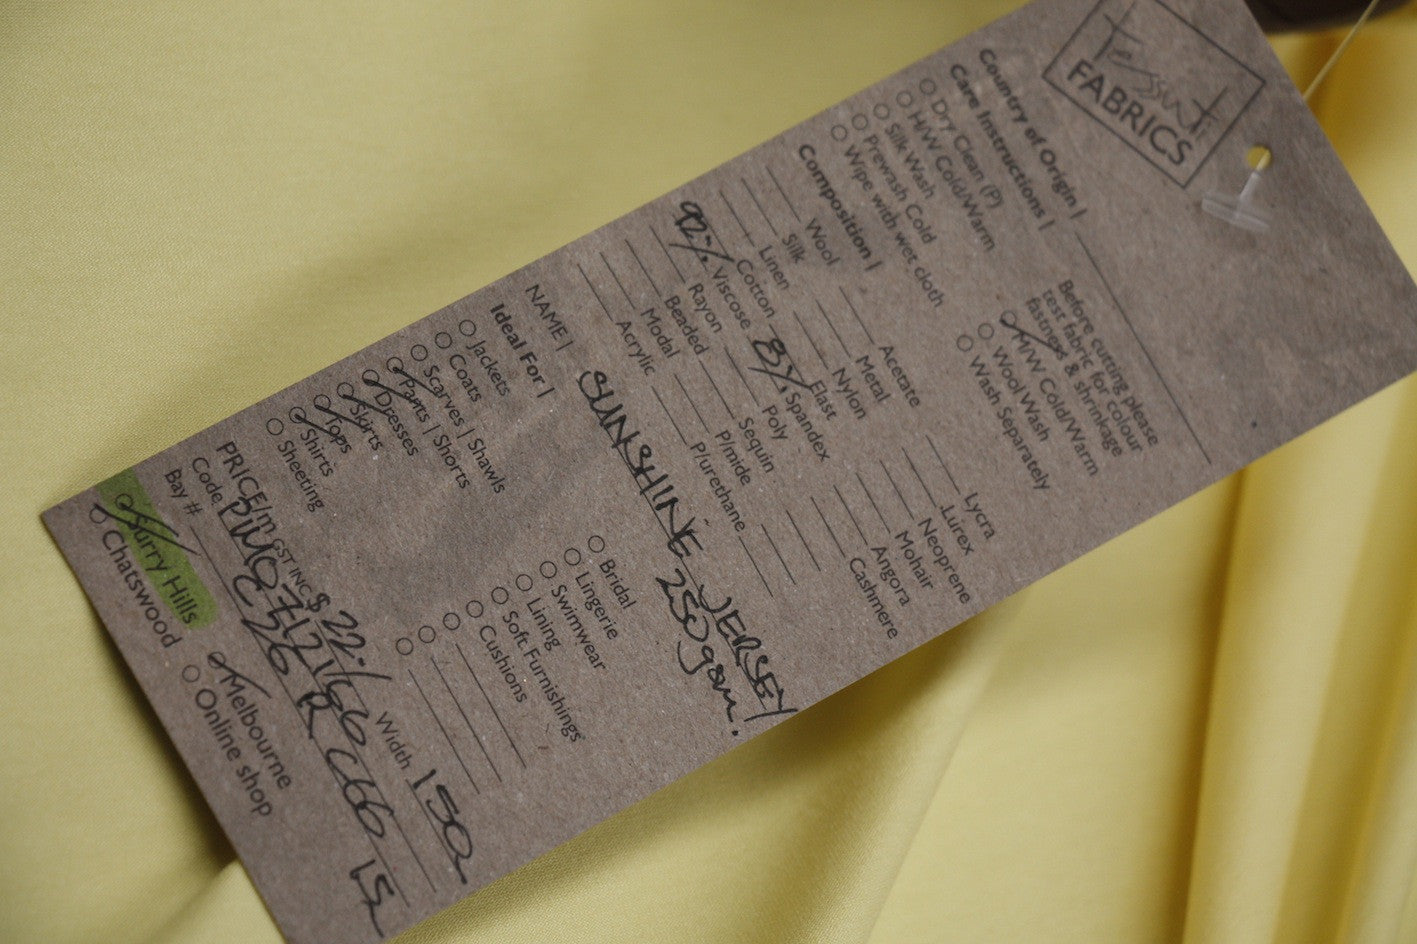 Tessuti
FABRICS
Country of Origin |
Care Instructions |
Dry Clean (P)
H/W Cold/Warm
Silk Wash
Prewash Cold
Wipe with wet cloth
Before cutting please
test fabric for colour
fastness & shrinkage
H/W Cold/Warm
Wool Wash
Wash Separately
Composition |
Wool
Silk
Linen
Cotton
92% Viscose
Rayon
Beaded
Modal
Acrylic
Acetate
Metal
Nylon
8% Elast Spandex
Poly
Sequin
P/mide
P/urethane
Lycra
Lurex
Neoprene
Mohair
Angora
Cashmere
NAME | SUNSHINE JERSEY
250gsm.
Ideal For |
Jackets
Coats
Scarves | Shawls
Pants | Shorts
Dresses
Skirts
Tops
Shirts
Sheeting
Bridal
Lingerie
Swimwear
Lining
Soft Furnishings
Cushions
PRICE/m GST INC $ 22- Width 150
Code
Bay # C26 R C66
Surry Hills
Chatswood
Melbourne
Online shop